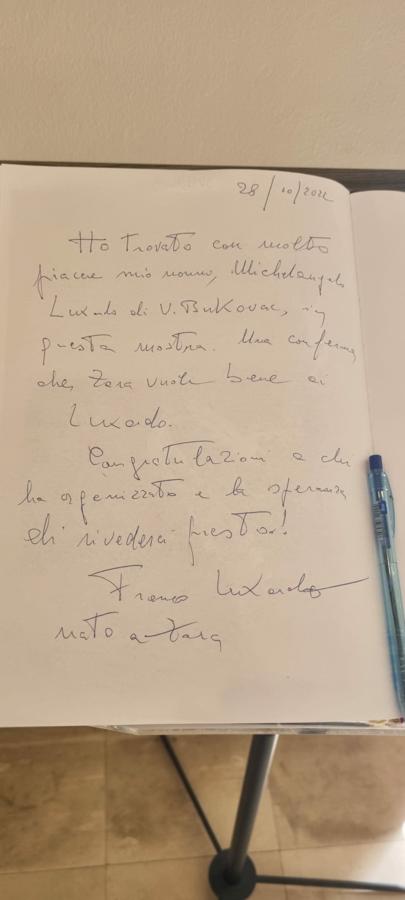 28/10/2022
Ho trovato con molto
piacere mio nonno, Michelangelo
Luxardo di V. Bukovac, in
questa mostra. Una conferma
che Zara vuole bene ai
Luxardo.
Congratulazioni a chi
ha organizzato e la speranza
di rivederci presto!
Franco Luxardo
nato a Zara